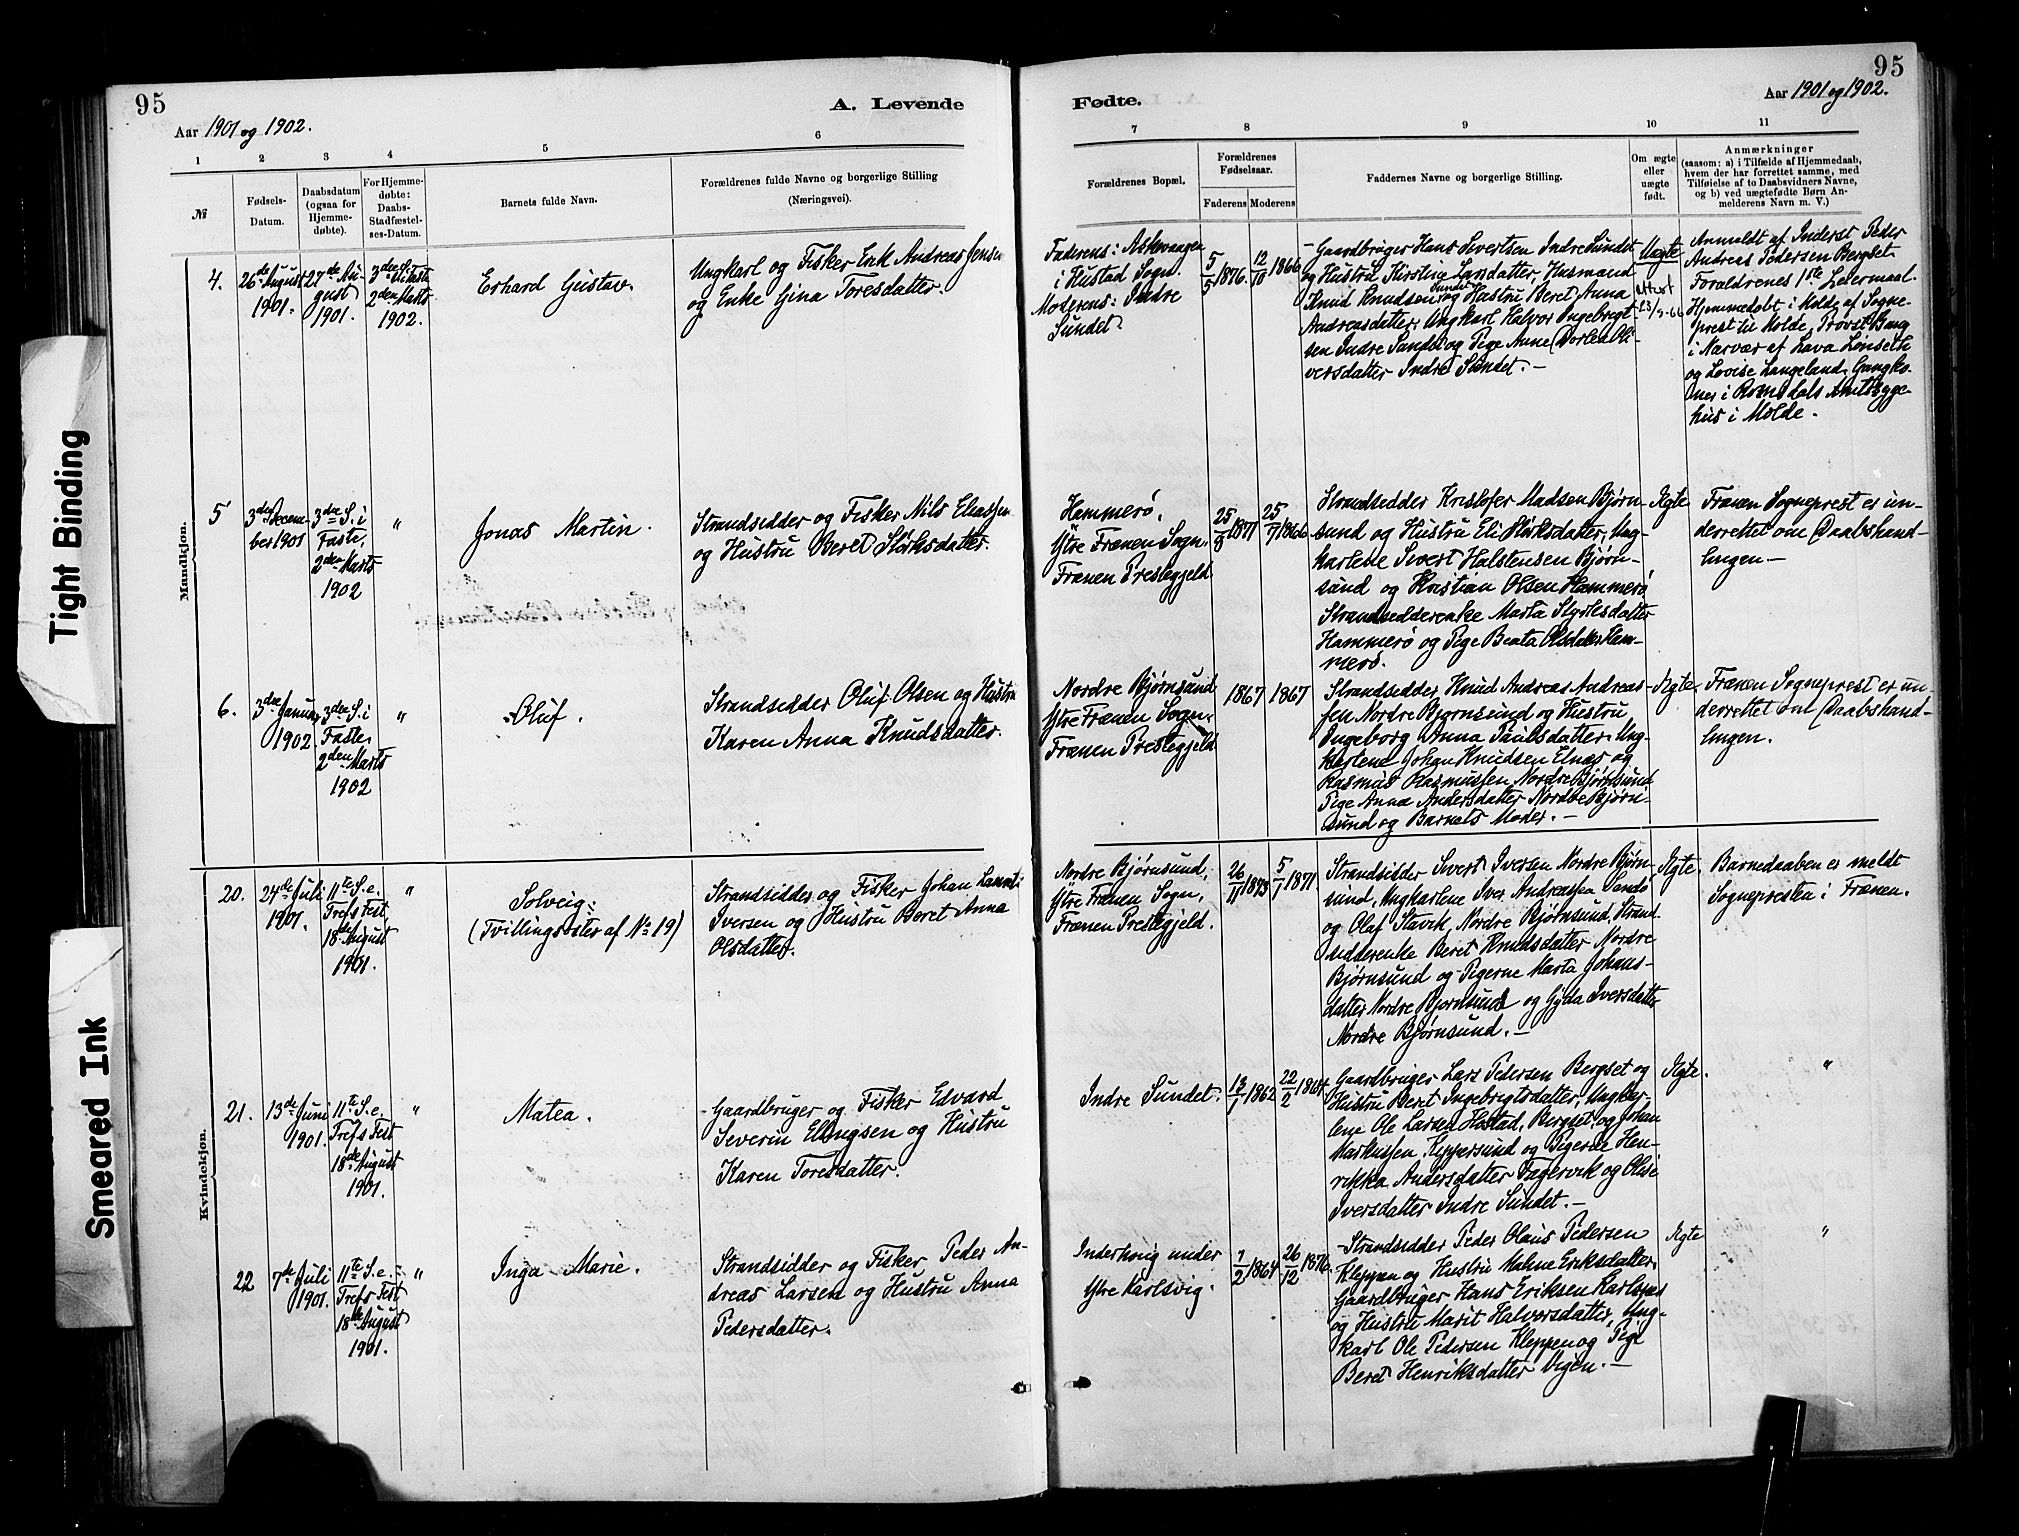 95
A. Levende
Aar 1901 og 1902.
1
2
3
4
5
6
№
Fødsels-
Datum.
Daabsdatum
(ogsaa for
Hjemme-
døbte).
For Hjemme-
døbte:
Daabs-
Stadfæstel-
ses-Datum.
Barnets fulde Navn.
Forældrenes fulde Navne og borgerlige Stilling
(Næringsvei).
Mandkjøn.
4.
26de August
1901.
27de Au-
gust
1901.
3die S. i Faste
2den Marts
1902.
Erhard Gustav.
Ungkarl og Fisker Enk Andreas Jensen
og Enke Gina Toresdatter
5
3die Decem-
ber 1901
3die S. i
Faste,
2den Marts
1902
"
Jonas Martin.
Strandsidder og Fisker Nils Eliassen
og Hustru Beret Størksdatter.
6.
3die Januar
1902.
3die S. i
Faste,
2den Marts
1902
"
Oluf.
Strandsidder Oluf Olsen og Hustru
Karen Anna Knudsdatter.
Kvindekjøn.
20.
24de Juli
1901.
11te S. e.
Trefs Fest
18de August
1901.
"
Solveig.
(Tvillingsøster af No 19)
Strandsidder og Fisker Johan Laurits
Iversen og Hustru Beret Anna
Olsdatter.
21.
13de Juni
1901.
11te S. e.
Trefs Fest
18de August
1901.
"
Matea.
Gaardbruger og Fisker Edvard
Severin Ellingsen og Hustru
Karen Toresdatter.
22
7de Juli
1901.
11te S. e.
Trefs Fest
18de August
1901.
"
Inga Marie.
Strandsidder og Fisker Peder An-
dreas Larsen og Hustru Anna
Pedersdatter.
95
Fødte.
Aar 1901 og 1902.
7
8
9
10
11
Forældrenes Bopæl.
Forældrenes
Fødselsaar.
Faderens
Moderens
Faddernes Navne og borgerlige Stilling.
Om ægte
eller
uægte
født.
Anmærkninger
(saasom: a) i Tilfælde af Hjemmedaab,
hvem der har forrettet samme, med
Tilføielse af to Daabsvidners Navne,
og b) ved uægtefødte Børn An-
melderens Navn m. V.)
Faderens: Askvaagen
i Hustad Sogn.
Moderens: Indre
Sundet
5/5 1876
12/10 1866
Gaardbruger Hans Sivertsen Indre Sundet
og Hustru Kirstine Larsdatter, Husmand
Knud Knudsen Sundet og Hustru Beret Anna
Andreasdatter, Ungkarl Halvor Ingebrigt-
sen Indre Sundet og Pige Anne Dorlea Oli-
versdatter Indre Sundet.—
Uægte
Anmeldt af Inderst Peder
Andreas Pedersen Bergset
Forældrenes 1ste Leiermaal
Hjemmedøbt i Molde af Sogne-
prest til Molde, Provst Bang
i Nærvær af Lava Lønseth
og Lovise Langeland, Gangko-
ner i Romsdals Amtsyge-
hus i Molde.
Hammerø,
Ytre Frænen Sogn,
Frænen Prestegjeld
25/8 1871
25/7 1866
Strandsidder Kristofer Madsen Bjørn-
sund og Hustru Eli Størksdatter, Ung-
karlene Sivert Halstensen Bjørn-
sund og Kristian Olsen Hammerø,
Strandsidderenke Marta Styrksdatter
Hammerø og Pige Beata Olsdatter Ham-
merø.
Ægte
Frænen Sogneprest er un-
derrettet om Daabshand-
lingen—
Nordre Bjørnsund
Ytre Frænen Sogn,
Frænen Prestegjeld
1867
1867
Strandsidder Knud Andreas Andreas-
sen Nordre Bjørnsund og Hustru
Ingeborg Anna Paulsdatter, Ung-
karlene Johan Knudsen Elnæs og
Rasmus Rasmussen Nordre Bjørnsund
Pige Anna Andersdatter Nordre Bjørn-
sund og Barnets Moder.—
Ægte.
Frænen Sogneprest er un-
derrettet om Daabshand-
lingen.
Nordre Bjørnsund,
Ytre Frænen Sogn,
Frænen Prestegjeld.
26/11 1873
5/1 1871.
Strandsidder Sivert Iversen Nordre Bjørn-
sund, Ungkarlene Iver Andreassen Sandø
og Olaf Stavik, Nordre Bjørnsund, Strand-
sidderenke Beret Knudsdatter Nordre
Bjørnsund og Pigerne Marta Johans-
datter Nordre Bjørnsund og Gyda Iversdatter
Nordre Bjørnsund.—
Ægte.
Barnedaaben er meldt
Sognepresten i Frænen.
Indre Sundet.
13/1 1862
22/2 1864.
Gaardbruger Lars Pedersen Bergset og
Hustru Beret Ingebrigtsdatter, Ungkar-
lene Ole Larsen Hostad, Bergset, og Johan
Markussen Keppersund og Pigerne Hen-
rikka Andersdatter Fagervik og Olise
Iversdatter Indre Sundet.—
Ægte.
"
Inderhorig under
Ytre Karlsvig.
7/2 1864
26/12 1876.
Strandsidder Peder Olaus Pedersen
Kleppen og Hustru Malene Eriksdatter,
Gaardbruger Hans Eriksen Karlsnes
og Hustru Marit Halvorsdatter, Ung-
karl Ole Pedersen Kleppen og Pige
Beret Henriksdatter Vigen.—
Ægte
"
Tight Binding
Smeared Ink